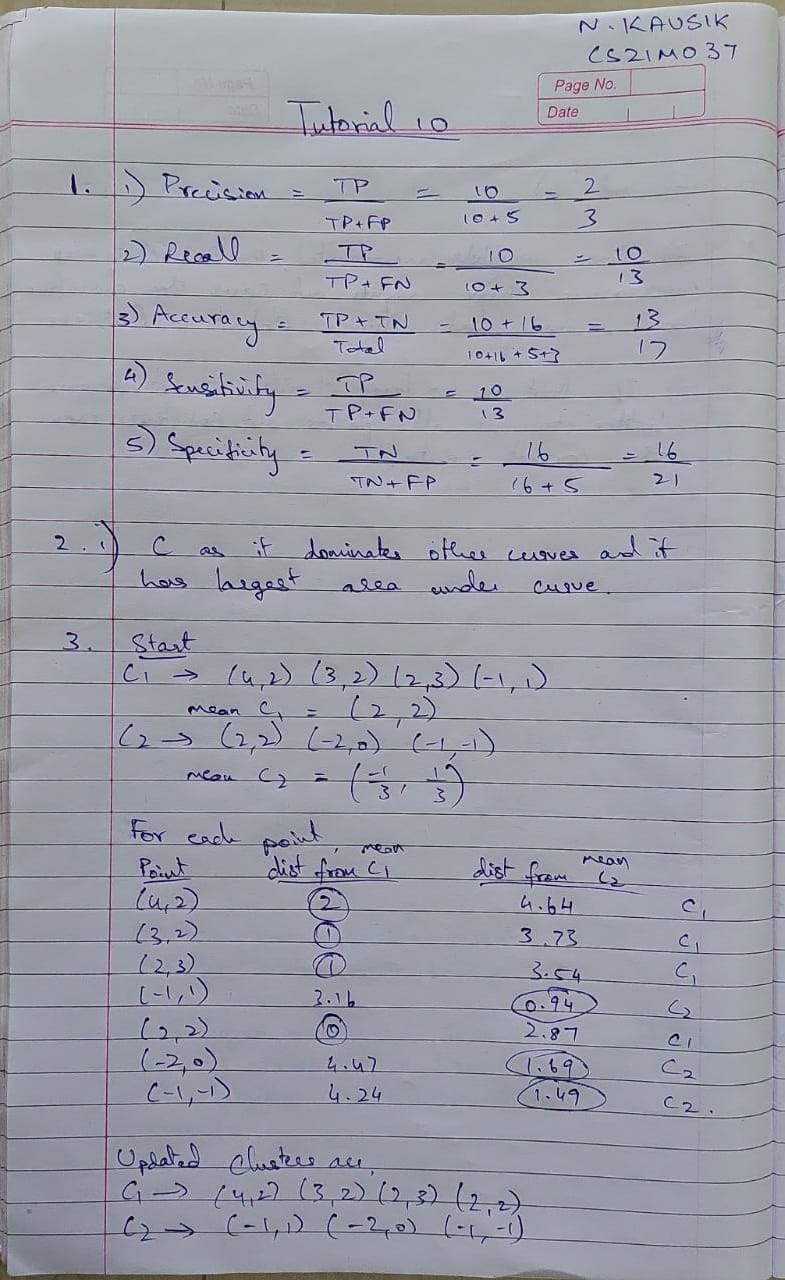 N. KAUSIK
CS21M037
Page No.
Date
Tutorial 10
1. 1) Precision = TP / TP+FP = 10 / 10+5 = 2 / 3
2) Recall = TP / TP+FN = 10 / 10+3 = 10 / 13
3) Accuracy = TP+TN / Total = 10+16 / 10+16+5+3 = 13 / 17
4) Sensitivity = TP / TP+FN = 10 / 13
5) Specificity = TN / TN+FP = 16 / 16+5 = 16 / 21
2. 1) C as it dominates other curves and it
has largest area under curve.
3. Start
C1 → (4,2) (3,2) (2,3) (-1,1)
mean C1 = (2,2)
C2 → (2,2) (-2,0) (-1,-1)
mean C2 = (-1/3, 1/3)
For each point,
Point dist from mean C1 dist from mean C2
(4,2) 2 4.64 C1
(3,2) 1 3.73 C1
(2,3) 1 3.54 C1
(-1,1) 3.16 0.94 C2
(2,2) 0 2.87 C1
(-2,0) 4.47 1.69 C2
(-1,-1) 4.24 1.49 C2.
Updated clusters are,
C1 → (4,2) (3,2) (2,3) (2,2)
C2 → (-1,1) (-2,0) (-1,-1)